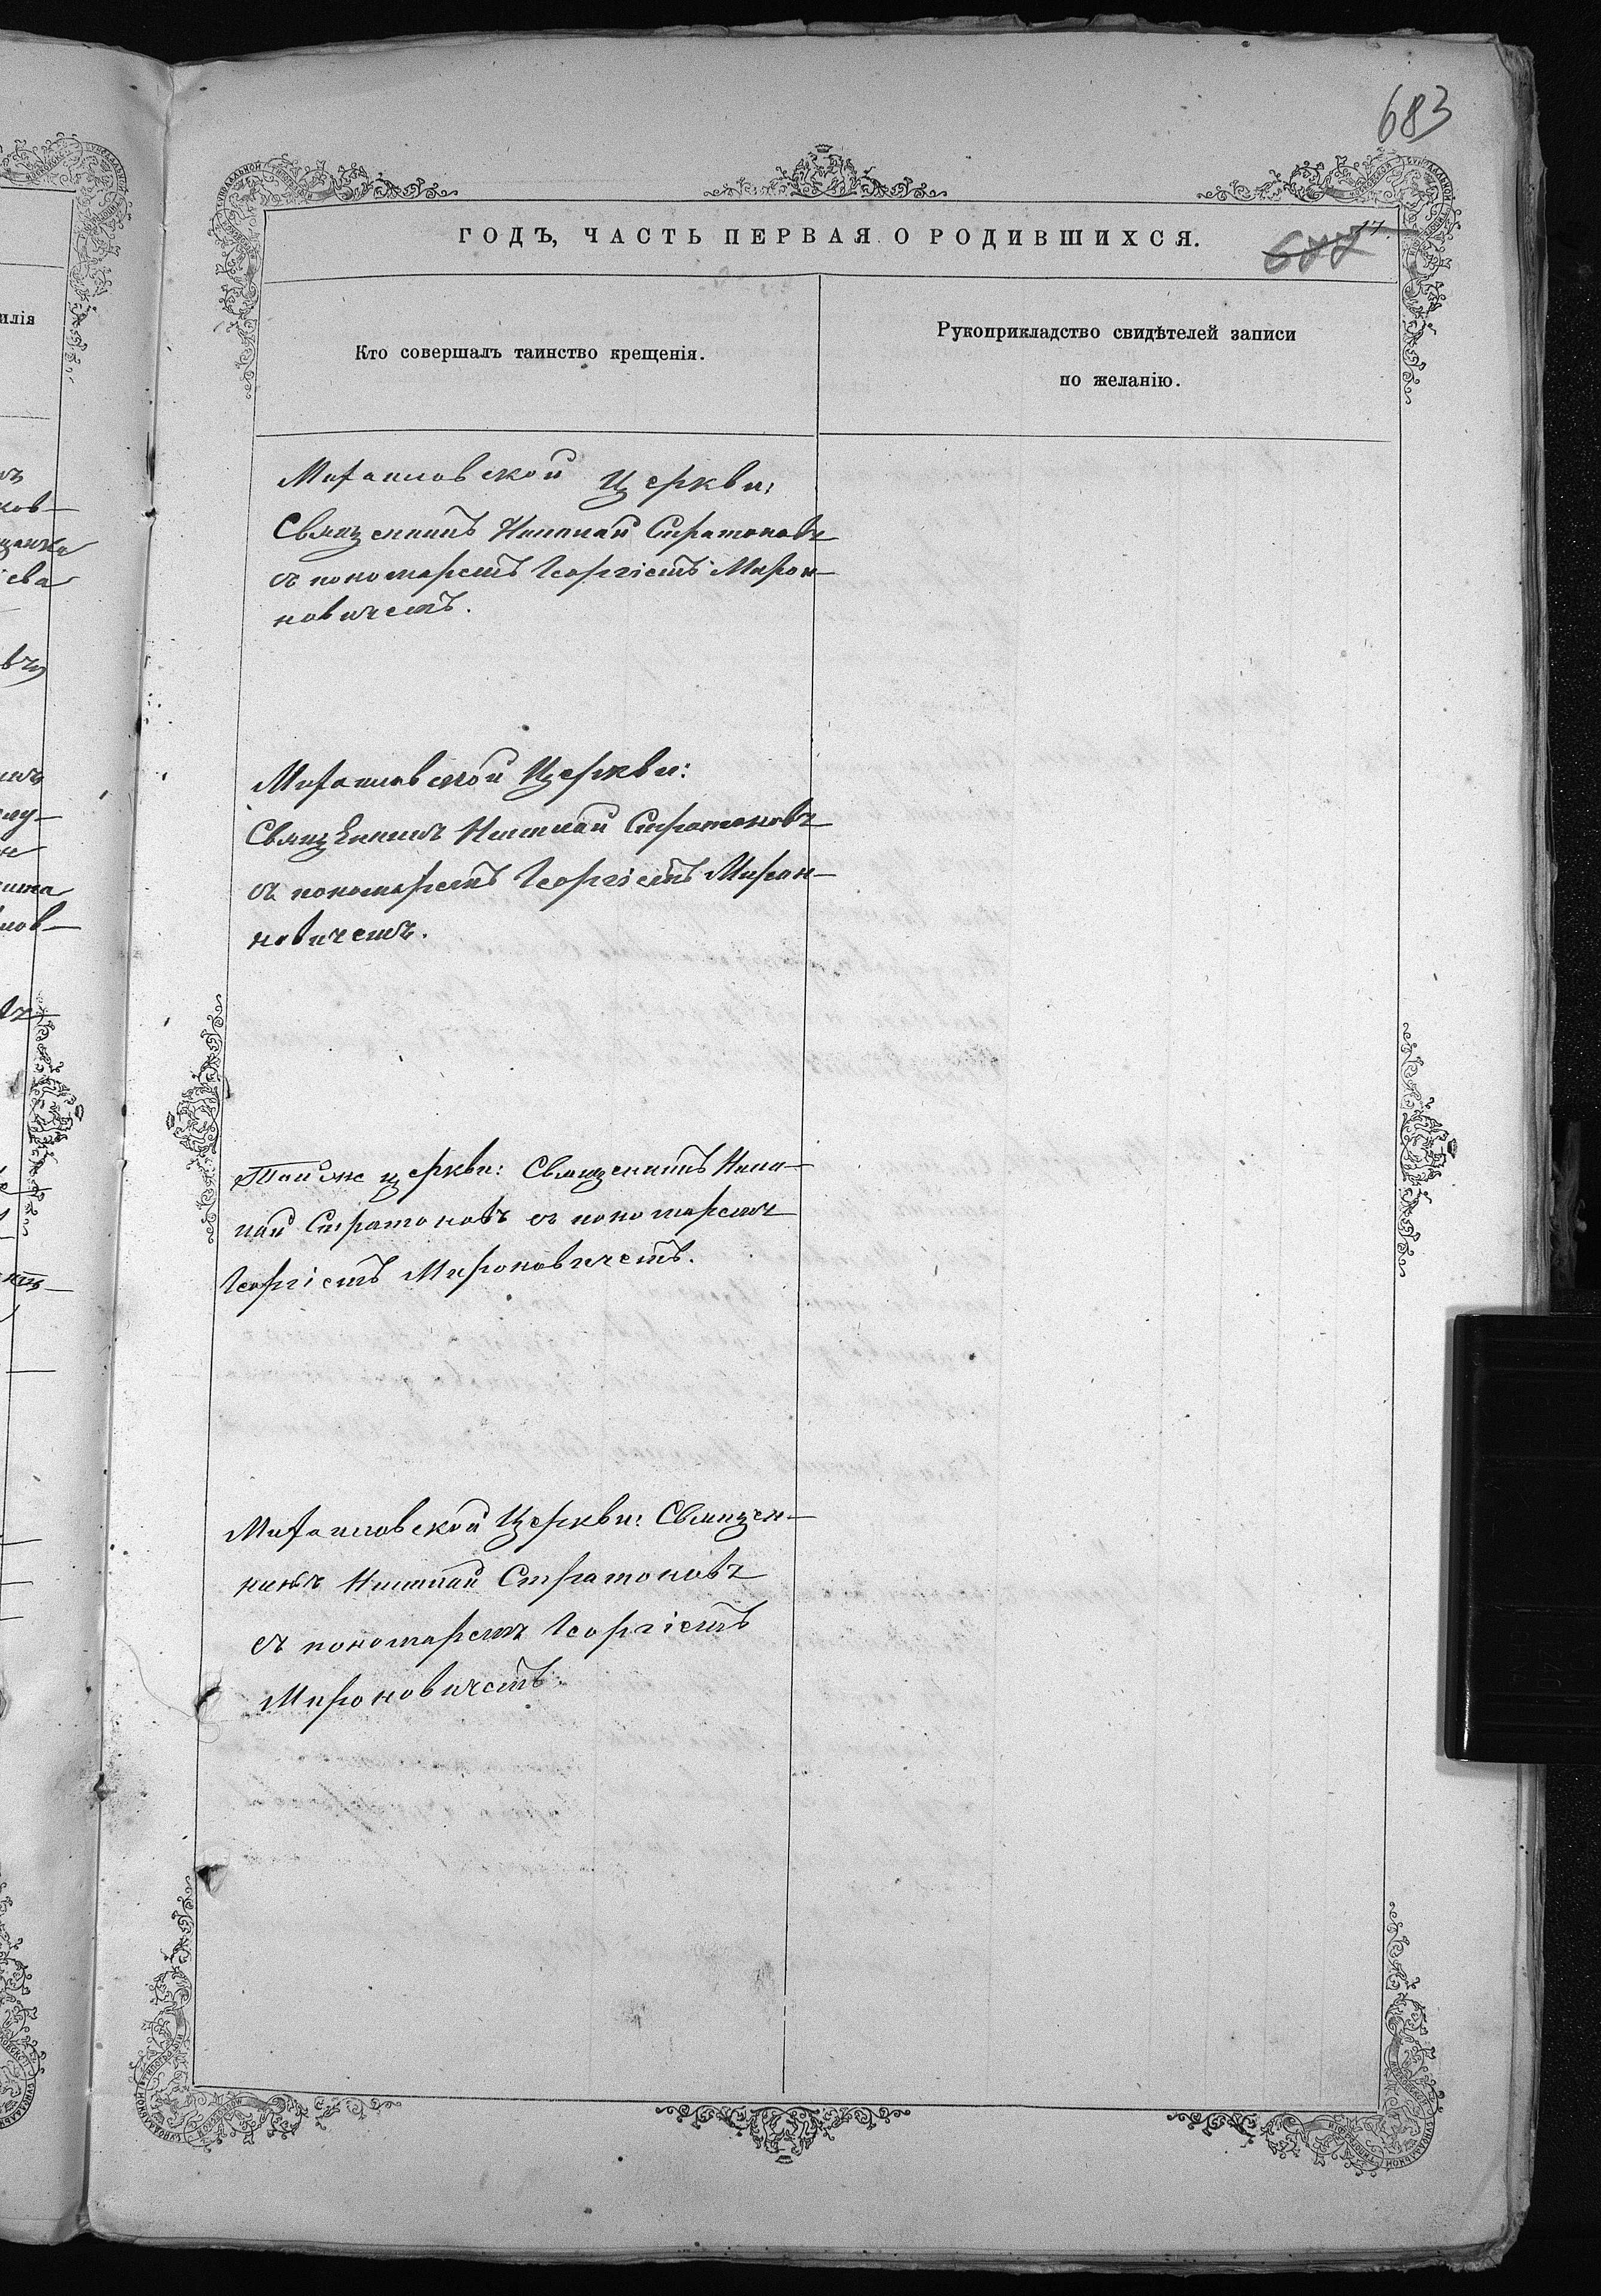 683
ГОДЪ, ЧАСТЬ ПЕРВАЯ О РОДИВШИХСЯ.
17.
Кто совершалъ таинство крещенія.
Рукоприкладство свидѣтелей записи
по желанію.
Михаиловской Церкви:
Священникъ Стратоновъ
съ пономаремъ Георгіемъ Мирон-
новичемъ.
Михаиловской Церкви:
Священникъ Стратоновъ
съ пономаремъ Георгіемъ Мирон-
новичемъ.
Той же церкви: Священникъ
Стратоновъ съ пономаремъ
Георгіемъ Мироновичемъ.
Михаиловской Церкви: Священ-
никъ Стратоновъ
съ пономаремъ Георгіемъ
Мироновичемъ.